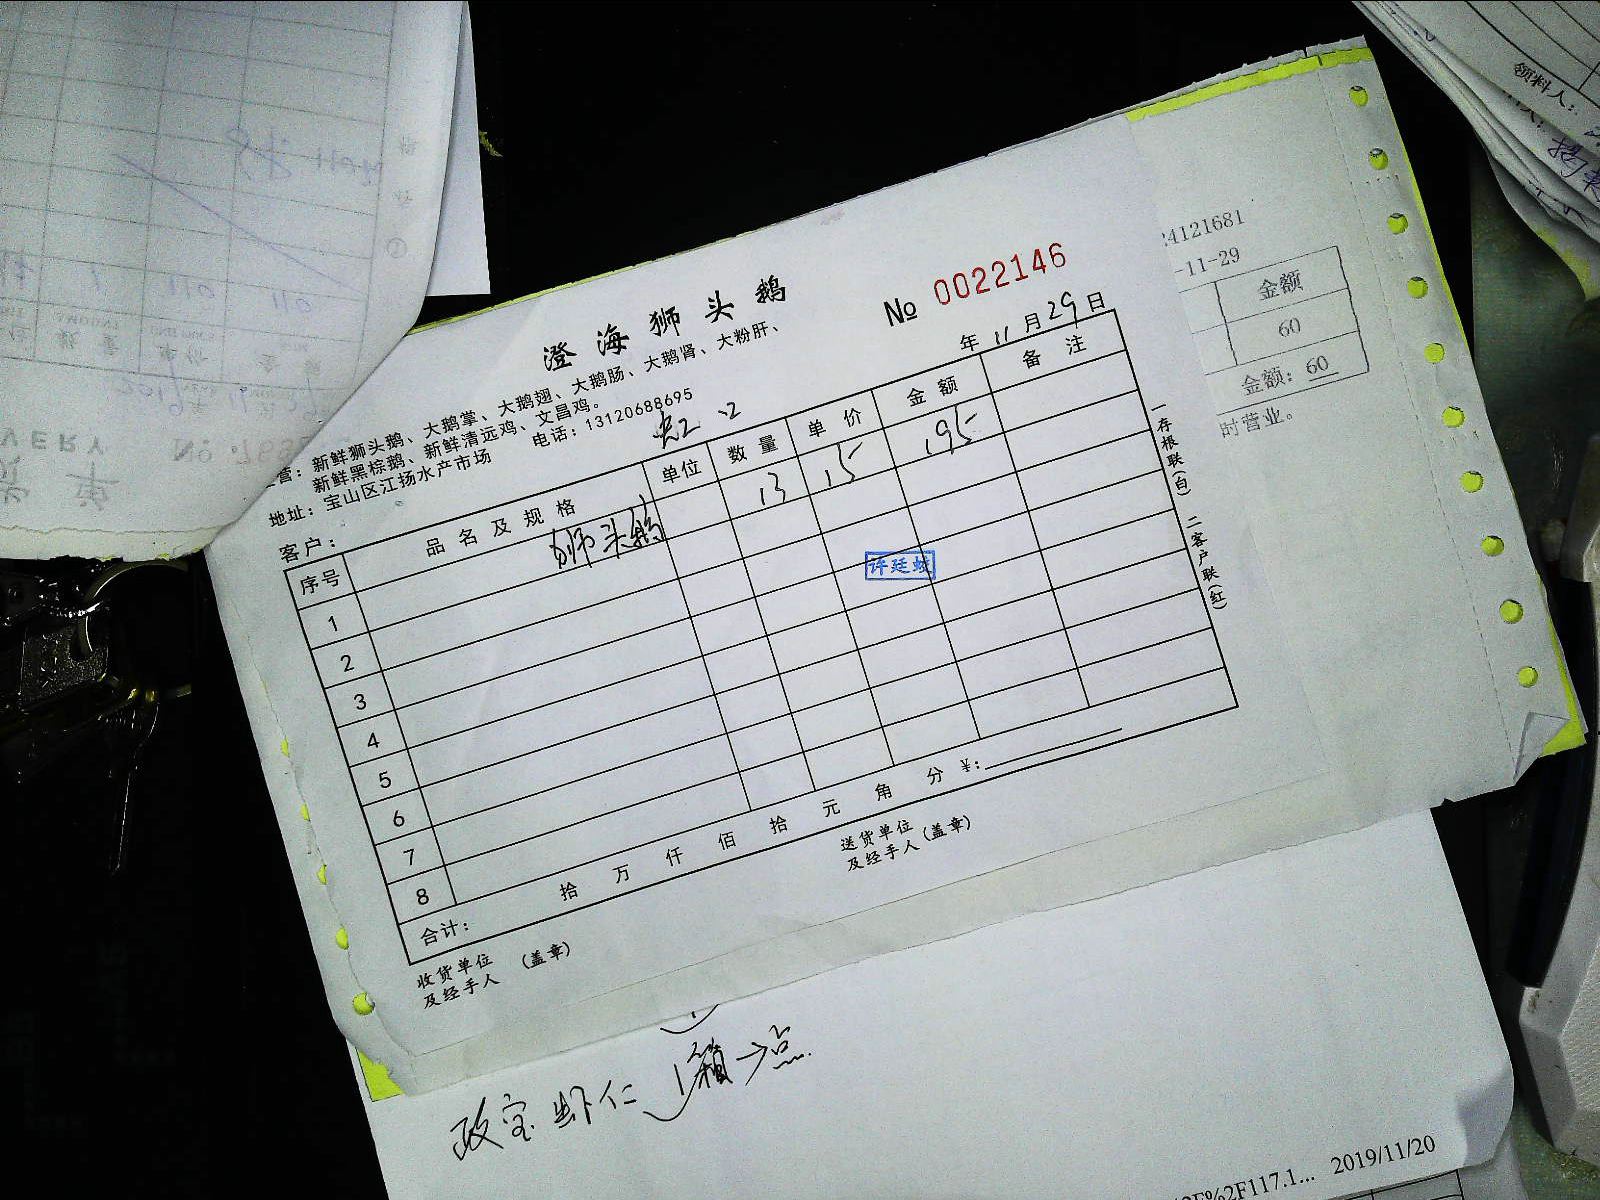 澄海狮头鹅
№ 0022146
营：新鲜狮头鹅、大鹅掌、大鹅翅、大鹅肠、大鹅肾、大粉肝、
新鲜黑棕鹅、新鲜清远鸡、文昌鸡。
地址：宝山区江扬水产市场 电话：13120688695
年 11 月 29 日
客户： 虹口
序号 品名及规格 单位 数量 单价 金额 备注
1 狮头鹅 13 15 195
2
3
4
5
6
7
8
许廷蛟
合计： 拾 万 仟 佰 拾 元 角 分 ¥:
收货单位
及经手人 （盖章）
送货单位
及经手人（盖章）
一存根联（白） 二客户联（红）
4121681
-11-29
金额
60
金额： 60
时营业。
领料人：
政宝虾仁 1箱→点
2F%2F117.1... 2019/11/20